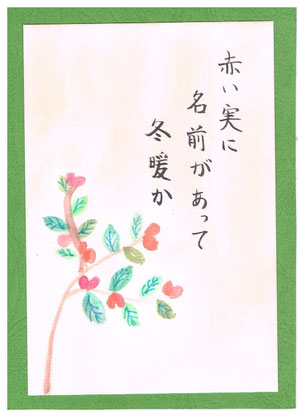 赤い実に
名前があって
冬暖か